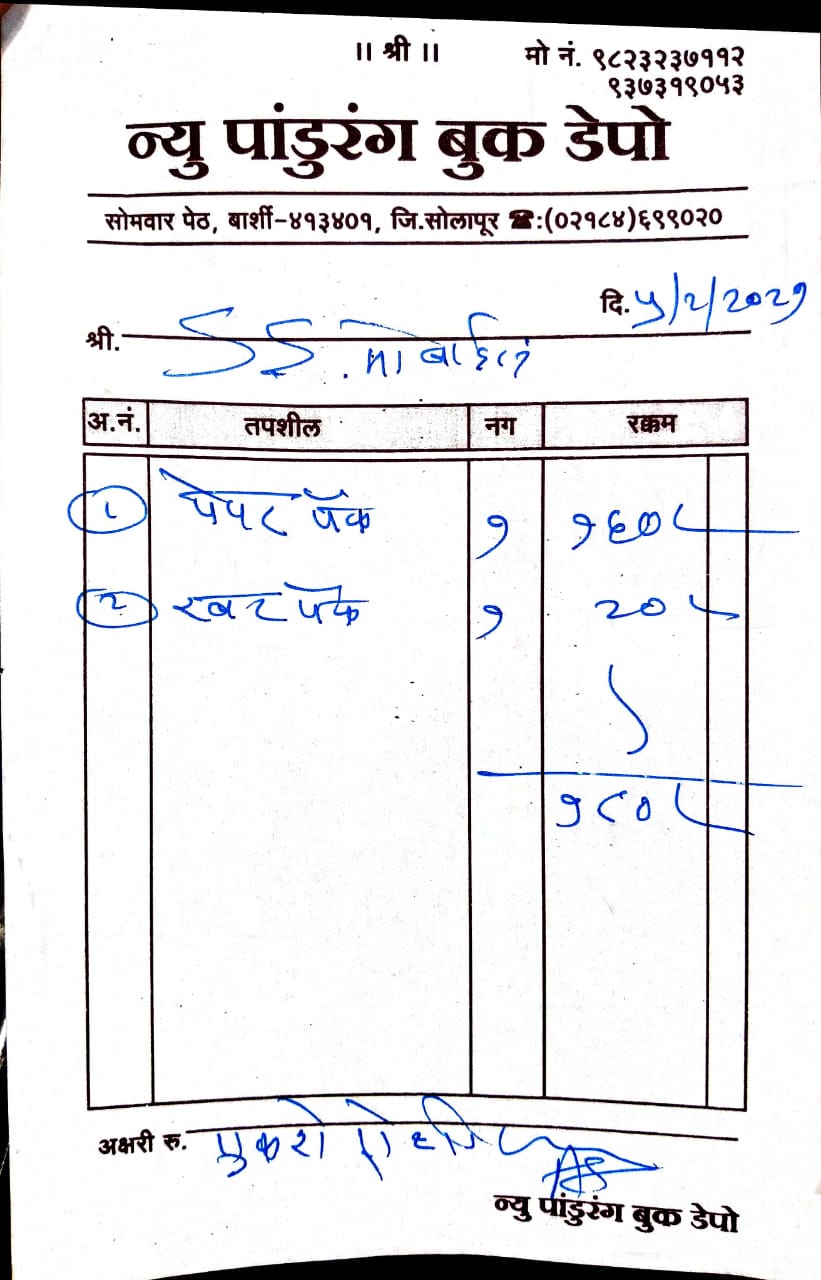 ॥ श्री ॥
मो नं. ९८२३२३७११२
९३७३१९०५३
न्यु पांडुरंग बुक डेपो
सोमवार पेठ, बार्शी-४१३४०१, जि.सोलापूर ☎:(०२१८४)६९९०२०
दि. ५/२/२०२१
श्री. SS. मोबाईल
अ.नं. तपशील नग रक्कम
१ पेपर पॅक १ १६०
२ रबर पॅक १ २०
१८०
अक्षरी रु.
न्यु पांडुरंग बुक डेपो